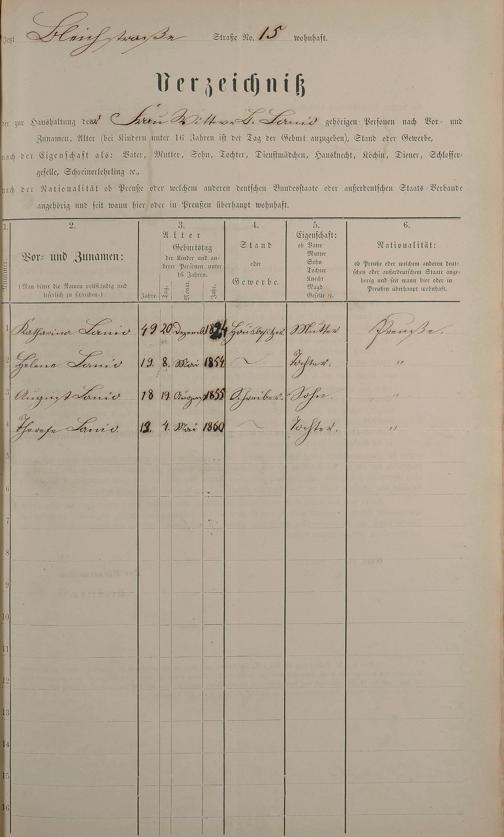 Jetzt Bleichstraße Straße No. 15 wohnhaft.
Verzeichniß
der zur Haushaltung des Frau Wittwe L. Lanio gehörigen Personen nach Vor- und
Zunamen, Alter (bei Kindern unter 16 Jahren ist der Tag der Geburt anzugeben), Stand oder Gewerbe,
nach der Eigenschaft als: Vater, Mutter, Sohn, Tochter, Dienstmädchen, Hausknecht, Köchin, Diener, Schlosser-
geselle, Schreinerlehrling ꝛc.,
nach der Nationalität ob Preuße oder welchem anderen deutschen Bundesstaate oder außerdeutschen Staats-Verbande
angehörig und seit wann hier oder in Preußen überhaupt wohnhaft.
1. 2. 3. 4. 5. 6.
Nummer.
Vor- und Zunamen:
(Man bittet die Namen vollständig und leserlich zu schreiben.)
Alter
Geburtstag
der Kinder und an-
derer Personen unter
16 Jahren.
Jahre. Tag. Monat. Jahr.
Stand
oder
Gewerbe.
Eigenschaft:
ob Vater
Mutter
Sohn
Tochter
Knecht
Magd
Geselle ꝛc.
Nationalität:
ob Preuße oder welchem anderen deut-
schen oder außerdeutschen Staate ange-
hörig und seit wann hier oder in
Preußen überhaupt wohnhaft.
1 Katharina Lanio 49 20 Dezemb 1824 Hausbesitzer Mutter Preuße.
2 Helene Lanio 19. 8. Mai 1854 — Tochter. "
3 August Lanio 18 19. August 1855 Schreiber. Sohn. "
4 Therese Lanio. 13. 4. Mai 1860 — Tochter. "
5
6
7
8
9
10
11
12
13
14
15
16